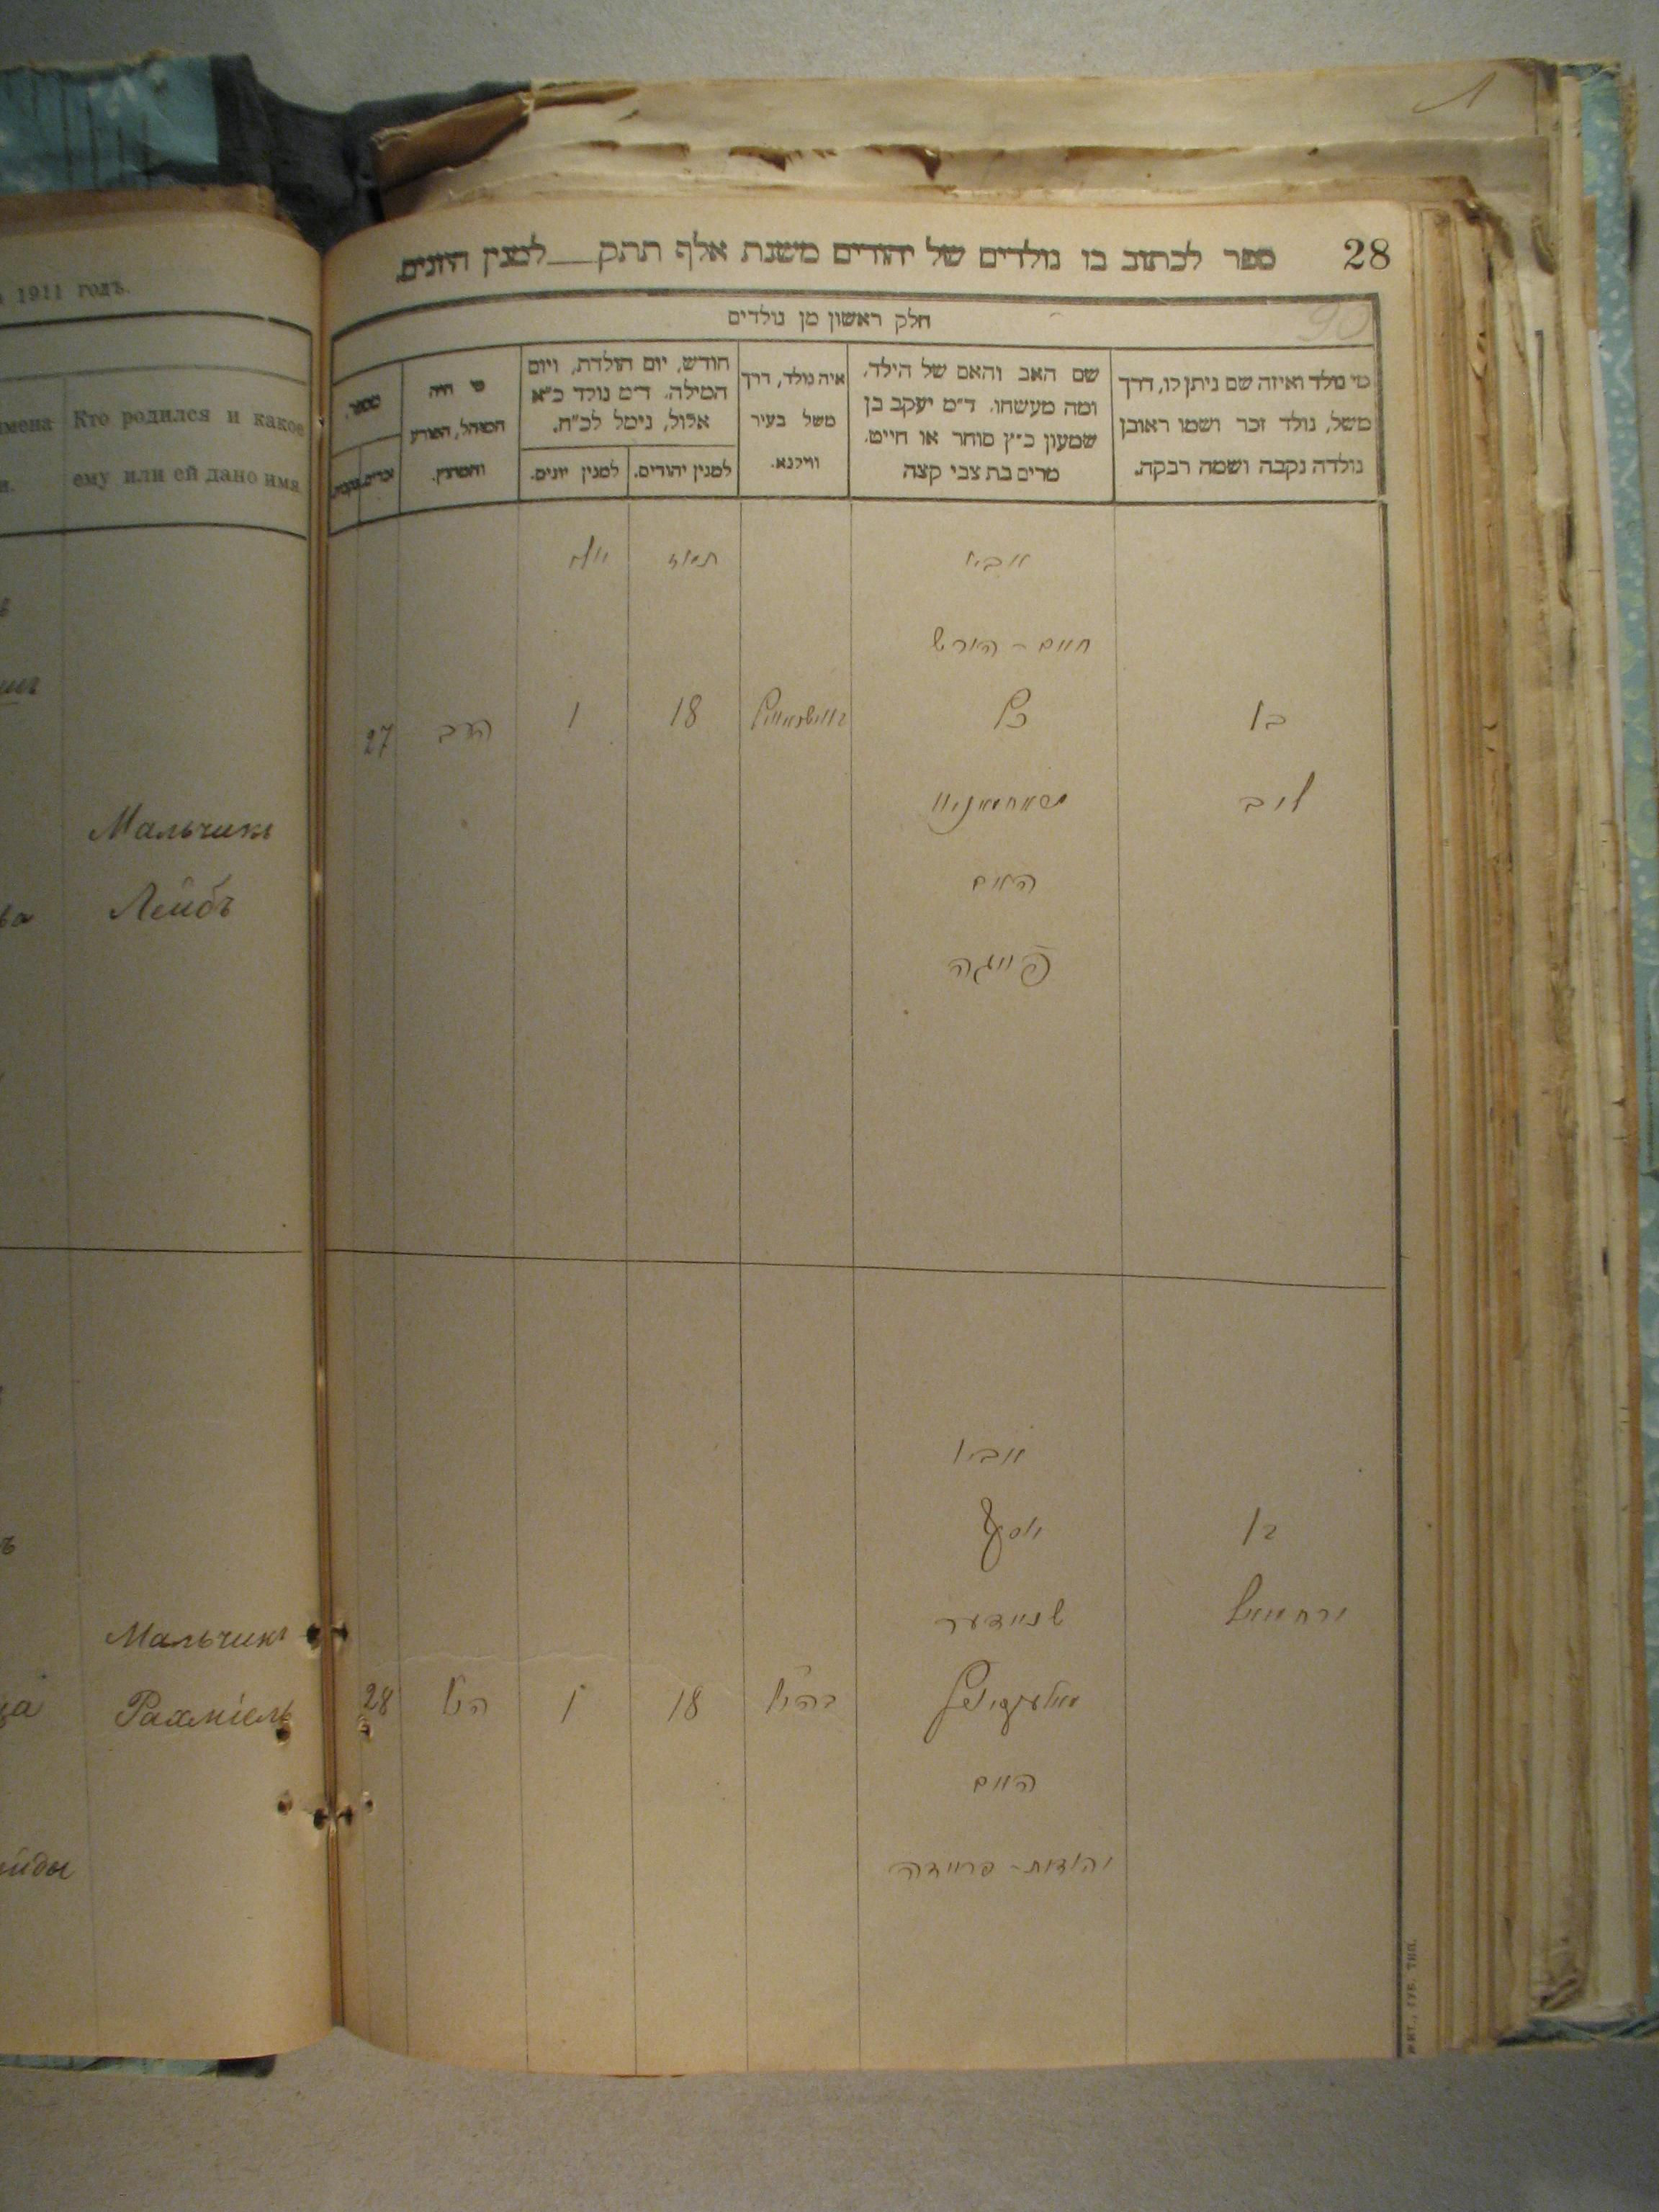 1911 годъ.
Кто родился и какое
ему или ей дано имя
Мальчикъ
Лейбъ
Мальчикъ
Рахміель
28
ספר לכתוב בו נולדים של יהודים משנת אלף תתק__למנין היונים
90
חלק ראשון מן נולדים
מי נולד ואיזה שם ניתן לו, דרך
משל, נולד זכר ושמו ראובן
נולדה נקבה ושמה רבקה.
שם האב והאם של הילד,
ומה מעשהו. ד״מ יעקב בן
שמעון כ״ץ סוחר או חייט.
מרים בת צבי קצה
איה נולד, דרך
משל בעיר
ווילנא.
חודש, יום הולדת, ויום
המילה. ד״מ נולד כ״א
אלול, נימל לכ״ח.
למנין יהודים.
למנין יונים.
מי היה
המוהל, הפורע
והמוצץ.
מספר.
זכרים.
אביו
תמוז
יולי
חיים - הירש
בן
כץ
18
1
הרב
27
ליב
האם
פייגה
אביו
בן
יוסף
ירחמיאל
שניידער
18
1
הנ״ל
28
האם
יהודית - פריידה